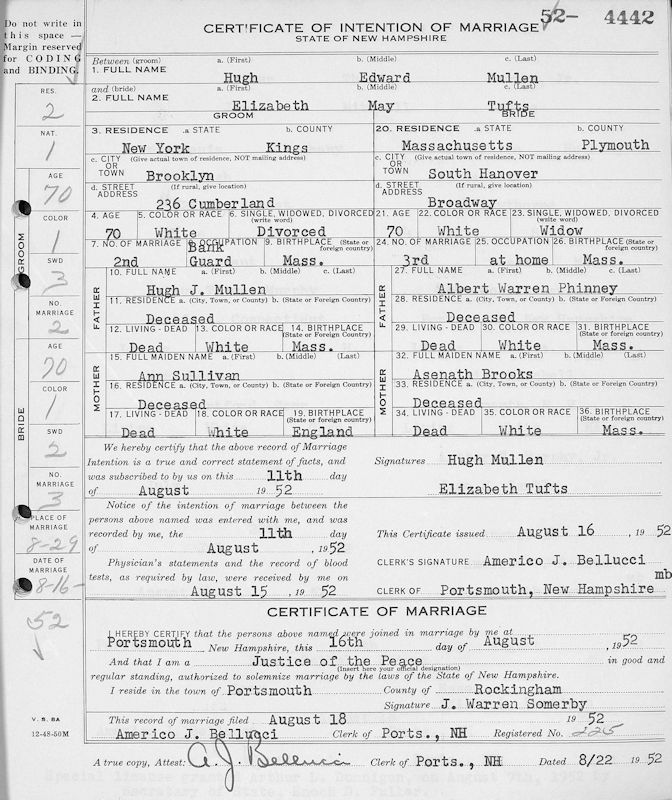 Do not write in
this space —
Margin reserved
for CODING
and BINDING.
52- 4442
CERTIFICATE OF INTENTION OF MARRIAGE
STATE OF NEW HAMPSHIRE
Between (groom) a. (First) b. (Middle) c. (Last)
1. FULL NAME Hugh Edward Mullen
and (bride) a. (First) b. (Middle) c. (Last)
2. FULL NAME Elizabeth May Tufts
GROOM BRIDE
3. RESIDENCE .a STATE b. COUNTY 20. RESIDENCE .a STATE b. COUNTY
New York Kings Massachusetts Plymouth
c. CITY OR TOWN (Give actual town of residence, NOT mailing address) c. CITY OR TOWN (Give actual town of residence, NOT mailing address)
Brooklyn South Hanover
d. STREET ADDRESS (If rural, give location) d. STREET ADDRESS (If rural, give location)
236 Cumberland Broadway
4. AGE 5. COLOR OR RACE 6. SINGLE, WIDOWED, DIVORCED (write word) 21. AGE 22. COLOR OR RACE 23. SINGLE, WIDOWED, DIVORCED (write word)
70 White Divorced 70 White Widow
7. NO. OF MARRIAGE 8. OCCUPATION 9. BIRTHPLACE (State or foreign country) 24. NO. OF MARRIAGE 25. OCCUPATION 26. BIRTHPLACE (State or foreign country)
2nd Bank Guard Mass. 3rd at home Mass.
FATHER
10. FULL NAME a. (First) b. (Middle) c. (Last) 27. FULL NAME a. (First) b. (Middle) c. (Last)
Hugh J. Mullen Albert Warren Phinney
11. RESIDENCE a. (City, Town, or County) b. (State or Foreign Country) 28. RESIDENCE a. (City, Town, or County) b. (State or Foreign Country)
Deceased Deceased
12. LIVING - DEAD 13. COLOR OR RACE 14. BIRTHPLACE (State or foreign country) 29. LIVING - DEAD 30. COLOR OR RACE 31. BIRTHPLACE (State or foreign country)
Dead White Mass. Dead White Mass.
MOTHER
15. FULL MAIDEN NAME a. (First) b. (Middle) (Last) 32. FULL MAIDEN NAME a. (First) b. (Middle) (Last)
Ann Sullivan Asenath Brooks
16. RESIDENCE a. (City, Town, or County) b. (State or Foreign Country) 33. RESIDENCE a. (City, Town, or County) b. (State or Foreign Country)
Deceased Deceased
17. LIVING - DEAD 18. COLOR OR RACE 19. BIRTHPLACE (State or foreign country) 34. LIVING - DEAD 35. COLOR OR RACE 36. BIRTHPLACE (State or foreign country)
Dead White England Dead White Mass.
We hereby certify that the above record of Marriage
Intention is a true and correct statement of facts, and
was subscribed to by us on this 11th day
of August 1952
Signatures Hugh Mullen
Elizabeth Tufts
Notice of the intention of marriage between the
persons above named was entered with me, and was
recorded by me, the 11th day
of August, 1952
This Certificate issued August 16, 1952
Physician's statements and the record of blood
tests, as required by law, were received by me on
August 15, 1952
CLERK'S SIGNATURE Americo J. Bellucci
mb
CLERK OF Portsmouth, New Hampshire
CERTIFICATE OF MARRIAGE
I HEREBY CERTIFY that the persons above named were joined in marriage by me at
Portsmouth New Hampshire, this 16th day of August, 1952
And that I am a Justice of the Peace in good and
(Insert here your official designation)
regular standing, authorized to solemnize marriage by the laws of the State of New Hampshire.
I reside in the town of Portsmouth County of Rockingham
Signature J. Warren Somerby
This record of marriage filed August 18 1952
Americo J. Bellucci Clerk of Ports., NH Registered No. 225
A true copy, Attest: A. J. Bellucci Clerk of Ports., NH Dated 8/22 1952
GROOM
RES.
2
NAT.
1
AGE
70
COLOR
1
SWD
3
NO. MARRIAGE
2
BRIDE
AGE
70
COLOR
1
SWD
2
NO. MARRIAGE
3
PLACE OF MARRIAGE
8-29
DATE OF MARRIAGE
8-16-
52
V. S. 8A
12-48-50M